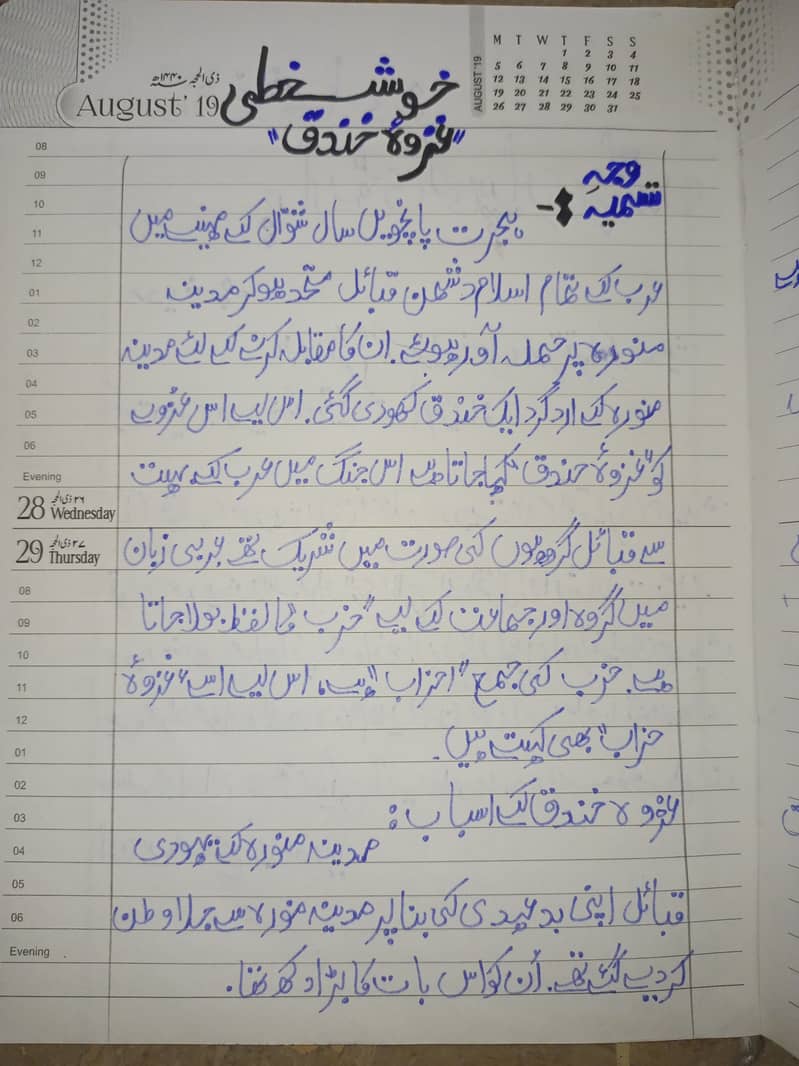 ذی الحجہ ۱۴۴۰ھ
August' 19
AUGUST '19
M T W T F S S
1 2 3 4
5 6 7 8 9 10 11
12 13 14 15 16 17 18
19 20 21 22 23 24 25
26 27 28 29 30 31
خوشخطی
"غزوۂ خندق"
08
09
وجہ
تسمیہ :-
10
ہجرت پانچویں سال شوال کے مہینے میں
11
12
عرب کے تمام اسلام دشمن قبائل متحد ہوکر مدینہ
01
02
منورہ پر حملہ آور ہوئے. ان کا مقابلہ کرنے کے لئے مدینہ
03
04
منورہ کے ارد گرد ایک خندق کھودی گئی. اس لیے اس غزوے
05
06
کو "غزوۂ خندق" کہا جاتا ہے اس جنگ میں عرب کے بہت
Evening
28 ۲۶ ذی الحجہ Wednesday
29 ۲۷ ذی الحجہ Thursday
سے قبائل گروہوں کی صورت میں شریک تھے عربی زبان
08
میں گروہ اور جماعت کے لیے "حزب" کا لفظ بولا جاتا
09
10
ہے. حزب کی جمع "احزاب" ہے، اس لیے اسے "غزوۂ
11
12
حزاب" بھی کہتے ہیں.
01
02
غزوہ خندق کے اسباب:
03
مدینہ منورہ کے یہودی
04
05
قبائل اپنی بد عہدی کی بنا پر مدینہ منورہ سے جلاوطن
06
Evening
کر دیے گئے تھے. اُن کو اس بات کا بڑا دکھ تھا.